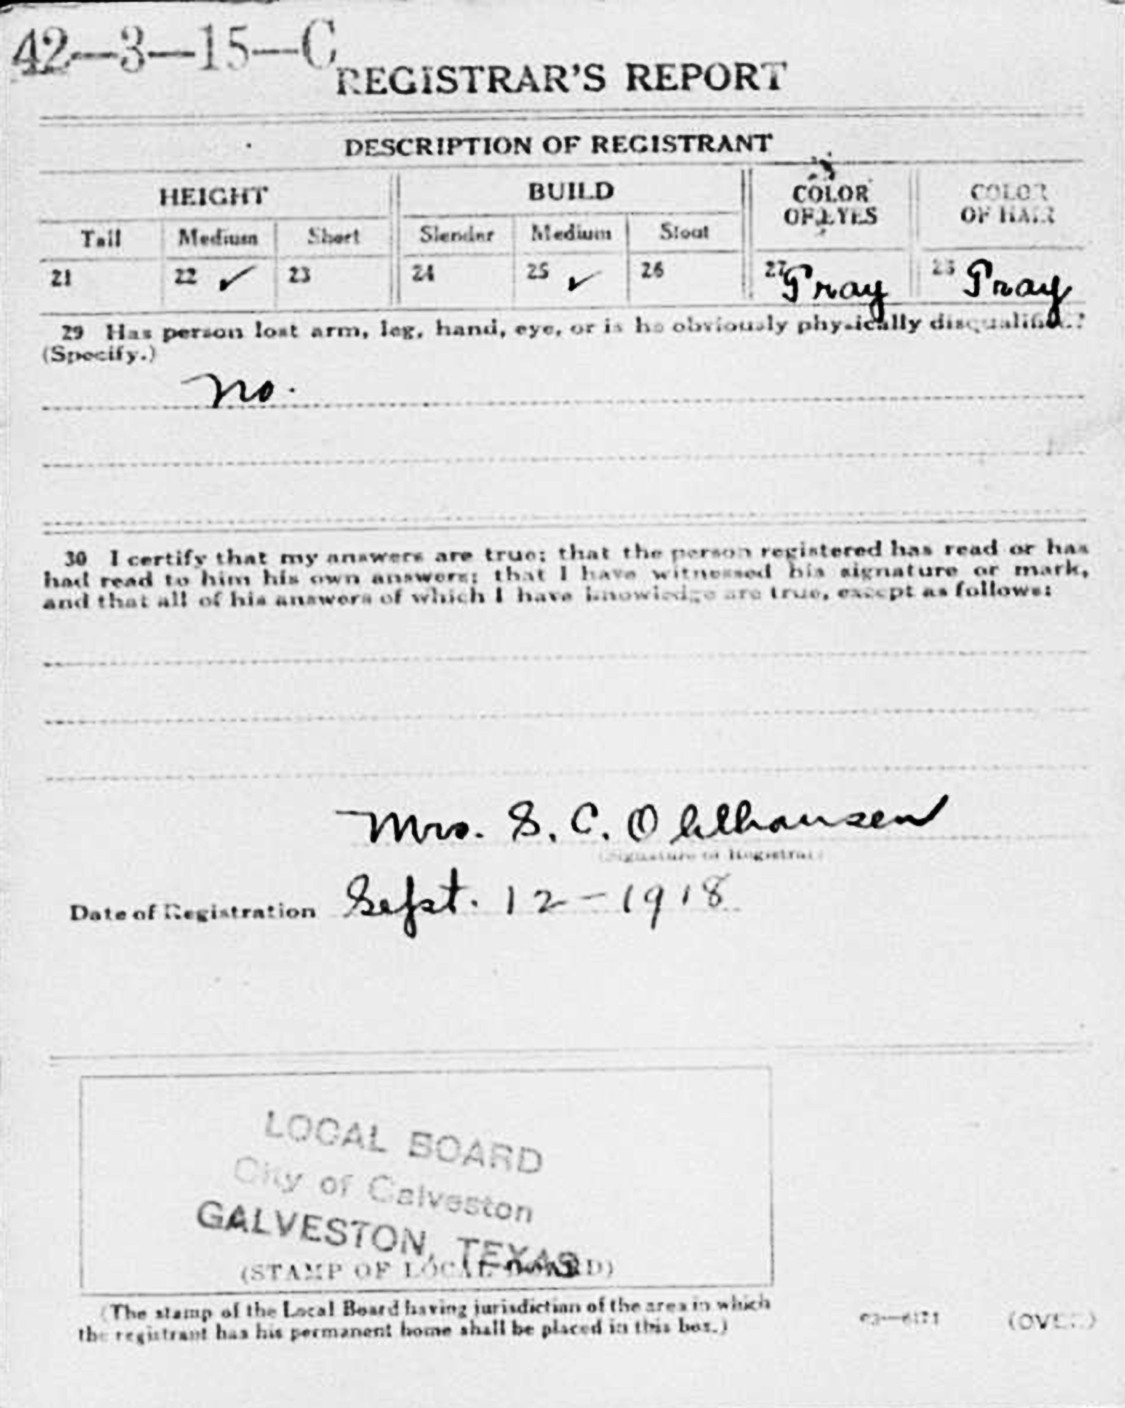 42—3—15—C
REGISTRAR'S REPORT
DESCRIPTION OF REGISTRANT
HEIGHT BUILD COLOR OF EYES COLOR OF HAIR
Tall Medium Short Slender Medium Stout
21 22 ✓ 23 24 25 ✓ 26 27 Gray 28 Gray
29 Has person lost arm, leg, hand, eye, or is he obviously physically disqualified?
(Specify.)
No.
30 I certify that my answers are true; that the person registered has read or has
had read to him his own answers; that I have witnessed his signature or mark,
and that all of his answers of which I have knowledge are true, except as follows:
Mrs. S. C. Ohlhausen
(Signature of Registrar)
Date of Registration Sept. 12-1918
LOCAL BOARD
City of Galveston
GALVESTON, TEXAS
(STAMP OF LOCAL BOARD)
(The stamp of the Local Board having jurisdiction of the area in which
the registrant has his permanent home shall be placed in this box.)
03—6171 (OVER)